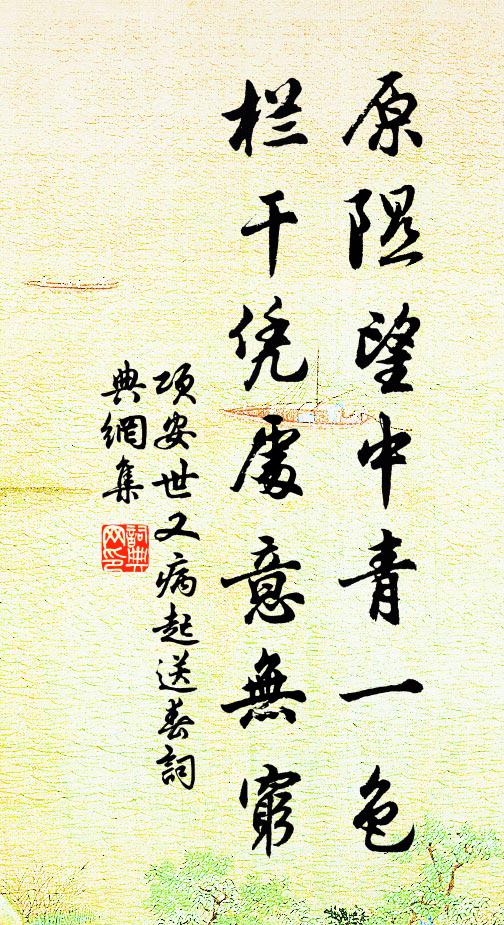 原隰望中青一色
栏干凭處意無窮
项安世又病起送春詞
典網集
詞典
网印